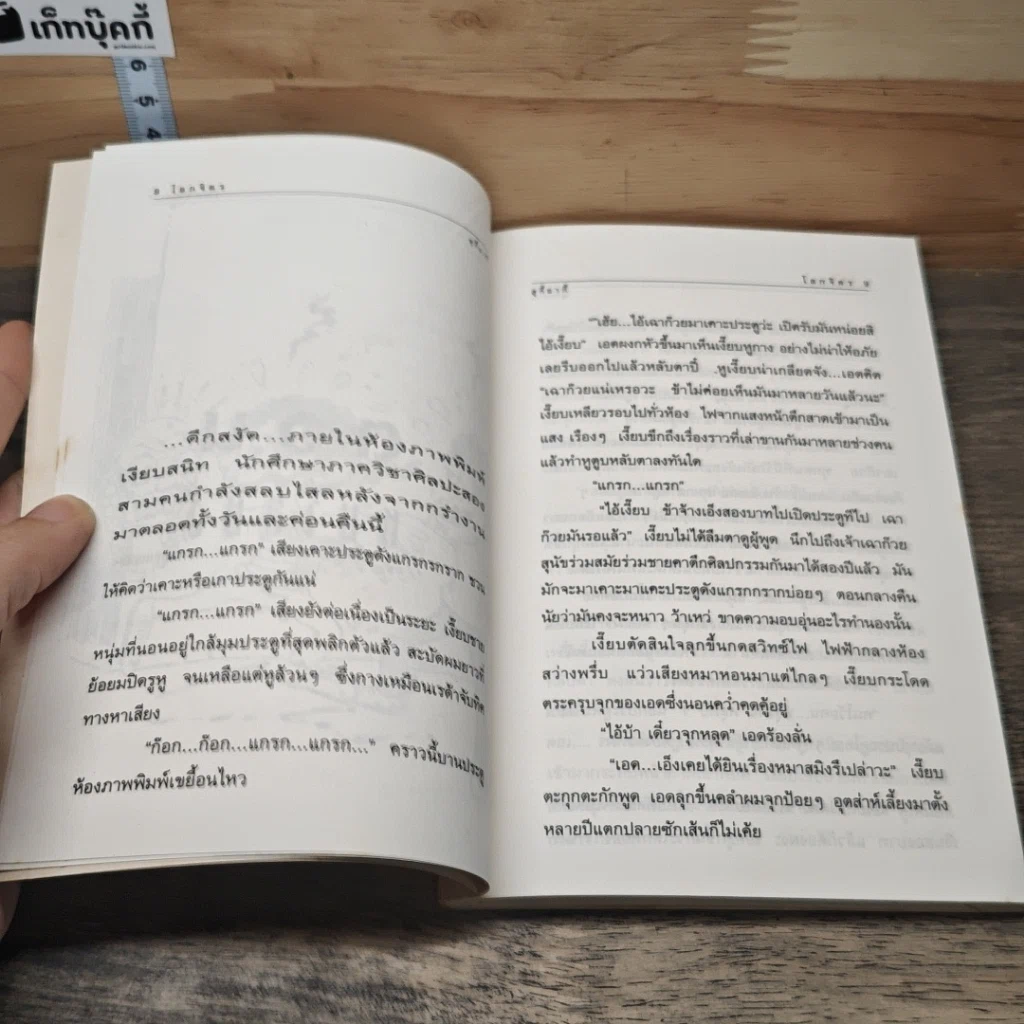 เก็ทบุ๊คกี้
6
5
4
8 โลกจิตร
...ตึกสงัด...ภายในห้องภาพพิมพ์
เงียบสนิท นักศึกษาภาควิชาศิลปะสอง
สามคนกำลังสลบไสลหลังจากกรำงาน
มาตลอดทั้งวันและค่อนคืนนี้
“แกรก...แกรก” เสียงเคาะประตูดังแกรกกรกราก ชวน
ให้คิดว่าเคาะหรือเกาประตูกันแน่
“แกรก...แกรก” เสียงยังต่อเนื่องเป็นระยะ เงี๊ยบชาย
หนุ่มที่นอนอยู่ใกล้มุมประตูที่สุดพลิกตัวแล้ว สะบัดผมยาวที่
ย้อยมปิดรูหู จนเหลือแต่หูล้วนๆ ซึ่งกางเหมือนเรด้าจับทิศ
ทางหาเสียง
“ก๊อก...ก๊อก...แกรก...แกรก...” คราวนี้บานประตู
ห้องภาพพิมพ์เขยื้อนไหว
โลกจิตร 9
“เฮ้ย...ไอ้เฉาก๊วยมาเคาะประตูว่ะ เปิดรับมันหน่อยสิ
ไอ้เงี๊ยบ” เอดผงกหัวขึ้นมาเห็นเงี๊ยบหูกาง อย่างไม่น่าให้อภัย
เลยรีบออกไปแล้วหลับตาปี๋ หูเงี๊ยบน่าเกลียดจัง...เอดคิด
“เฉาก๊วยแน่เหรอวะ ข้าไม่ค่อยเห็นมันมาหลายวันแล้วนะ”
เงี๊ยบเหลียวรอบไปทั่วห้อง ไฟจากแสงหน้าตึกสาดเข้ามาเป็น
แสง เรืองๆ เงี๊ยบขึกถึงเรื่องราวที่เล่าขานกันมาหลายช่วงคน
แล้วทำหูตูบหลับตาลงทันใด
“แกรก...แกรก”
“ไอ้เงี๊ยบ ข้าจ้างเอ็งสองบาทไปเปิดประตูทีไป เฉา
ก๊วยมันรอแล้ว” เงี๊ยบไม่ได้ลืมตาดูผู้พูด นึกไปถึงเจ้าเฉาก๊วย
สุนัขร่วมสมัยร่วมชายคาตึกศิลปกรรมกันมาได้สองปีแล้ว มัน
มักจะมาเคาะมาแคะประตูดังแกรกกรากบ่อยๆ ตอนกลางคืน
นัยว่ามันคงจะหนาว ว้าเหว่ ขาดความอบอุ่นอะไรทำนองนั้น
เงี๊ยบตัดสินใจลุกขึ้นกดสวิทซ์ไฟ ไฟฟ้ากลางห้อง
สว่างพรึ่บ แว่วเสียงหมาหอนมาแต่ไกลๆ เงี๊ยบกระโดด
ตระครุบจุกของเอดซึ่งนอนคว่ำคุดคู้อยู่
“ไอ้บ้า เดี๋ยวจุกหลุด” เอดร้องลั่น
“เอด...เอ็งเคยได้ยินเรื่องหมาสมิงรึเปล่าวะ” เงี๊ยบ
ตะกุกตะกักพูด เอดลุกขึ้นคลำผมจุกป้อยๆ อุตส่าห์เลี้ยงมาตั้ง
หลายปีแตกปลายซักเส้นก็ไม่เคัย